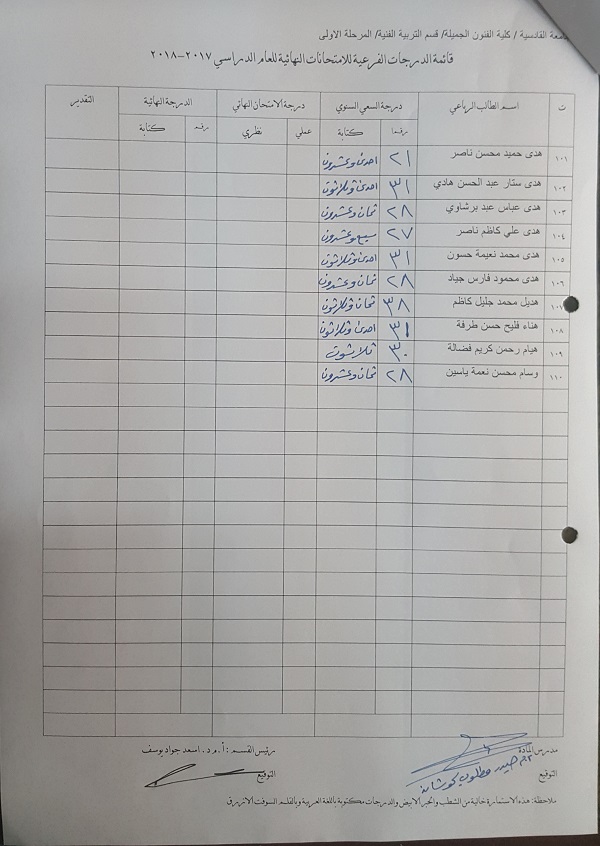 جامعة القادسية / كلية الفنون الجميلة/ قسم التربية الفنية/ المرحلة الاولى
قائمة الدرجات الفرعية للامتحانات النهائية للعام الدراسي ٢٠١٧-٢٠١٨
ت اسم الطالب الرباعي درجة السعي السنوي درجة الامتحان النهائي الدرجة النهائية التقدير
رقما كتابة عملي نظري رقما كتابة
١٠١ هدى حميد محسن ناصر ٢١ احدى وعشرون
١٠٢ هدى ستار عبد الحسن هادي ٣١ احدى وثلاثون
١٠٣ هدى عباس عبد برشاوي ٢٨ ثمان وعشرون
١٠٤ هدى علي كاظم ناصر ٢٧ سبع وعشرون
١٠٥ هدى محمد نعيمة حسون ٣١ احدى وثلاثون
١٠٦ هدى محمود فارس جياد ٢٨ ثمان وعشرون
١٠٧ هديل محمد جليل كاظم ٣٨ ثمان وثلاثون
١٠٨ هناء فليح حسن طرفة ٣١ احدى وثلاثون
١٠٩ هيام رحمن كريم فضالة ٣٠ ثلاثون
١١٠ وسام محسن نعمة ياسين ٢٨ ثمان وعشرون
مدرس المادة رئيس القسم : أ.م.د. اسعد جواد يوسف
التوقيع التوقيع
ملاحظة: هذه الاستمارة خالية من الشطب والحبر الابيض والدرجات مكتوبة باللغة العربية وبالقلم السوفت الازرق